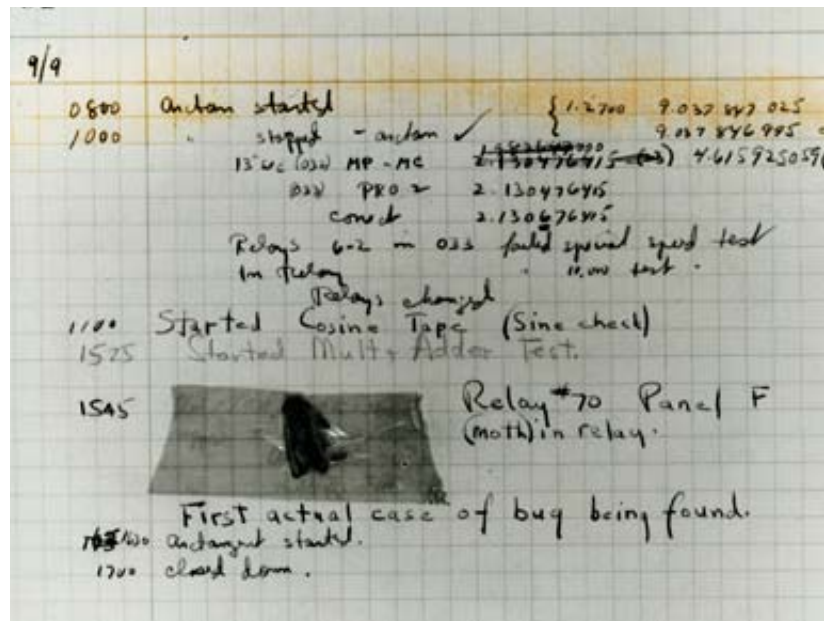 9/9
0800 Antan started { 1.2700 9.037 847 025
1000 " stopped - antan ✓ 9.037 846 995
13"uc (032) MP - MC 2.130476415 (23) 4.615925059(
(033) PRO 2 2.130476415
conect 2.130676415
Relays 6-2 in 033 failed special speed test
In Relay " 10.000 test .
Relays changed
1100 Started Cosine Tape (Sine check)
1525 Started Mult + Adder Test.
1545 Relay #70 Panel F
(moth) in relay.
First actual case of bug being found.
1630 Antangent started.
1700 closed down.